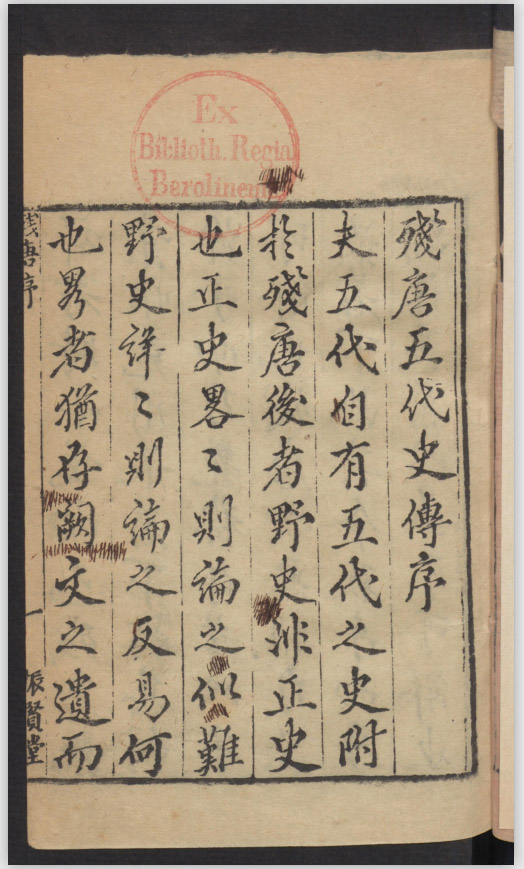 Ex
Biblioth. Regia
Berolinens
殘唐五代史傳序
夫五代自有五代之史附
於殘唐後者野史非正史
也正史畧〻則論之似難
野史詳〻則論之反易何
也畧者猶存闕文之遺而
殘唐序
一
振賢堂